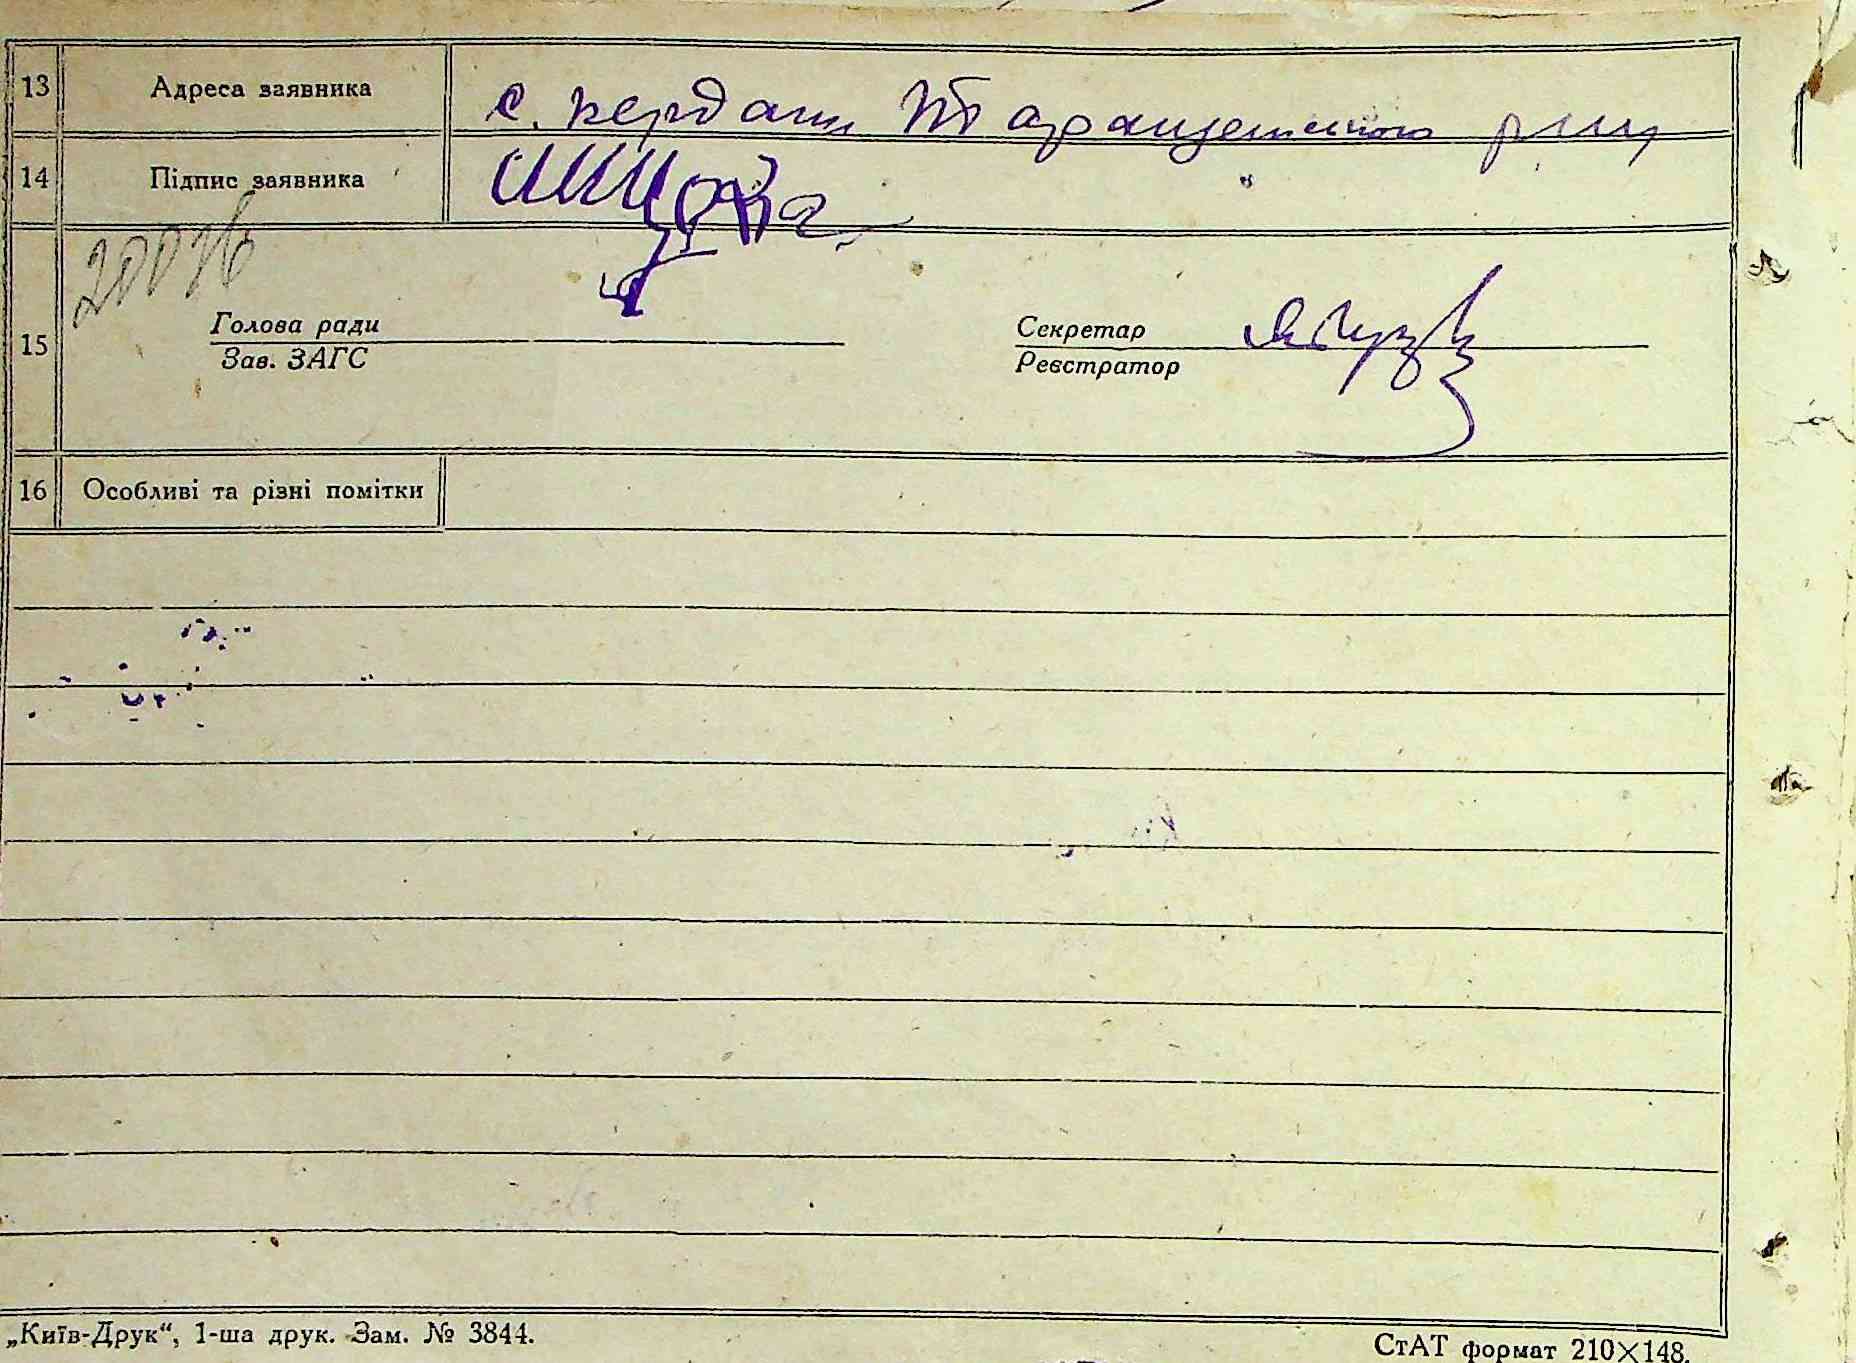 13 Адреса заявника с. Кердани Таращанського р-ну
14 Підпис заявника
15 Голова ради Секретар
Зав. ЗАГС Реєстратор
16 Особливі та різні помітки
„Київ-Друк“, 1-ша друк. Зам. № 3844. СтАТ формат 210×148.